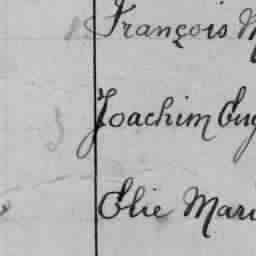 François M
Joachim Eug
Elie Mari